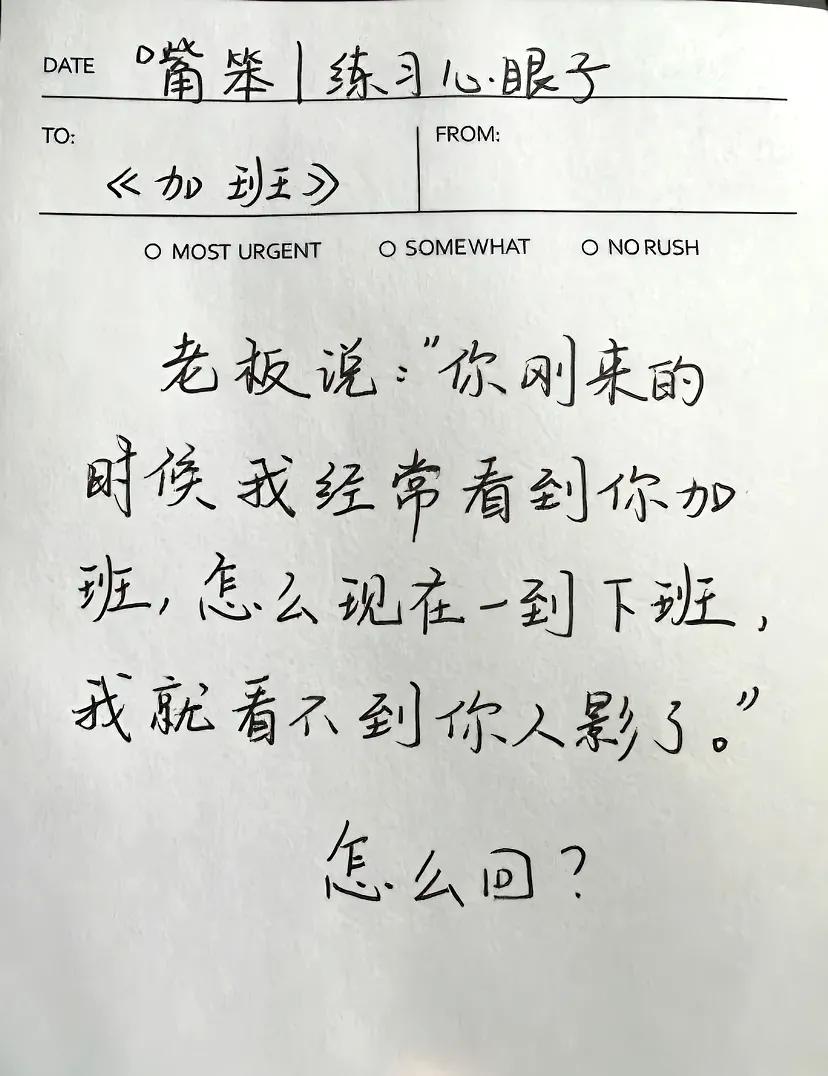 DATE 嘴笨|练习心眼子
TO: FROM:
《加班》
MOST URGENT SOMEWHAT NO RUSH
老板说:"你刚来的
时候我经常看到你加
班,怎么现在一到下班,
我就看不到你人影了。"
怎么回?